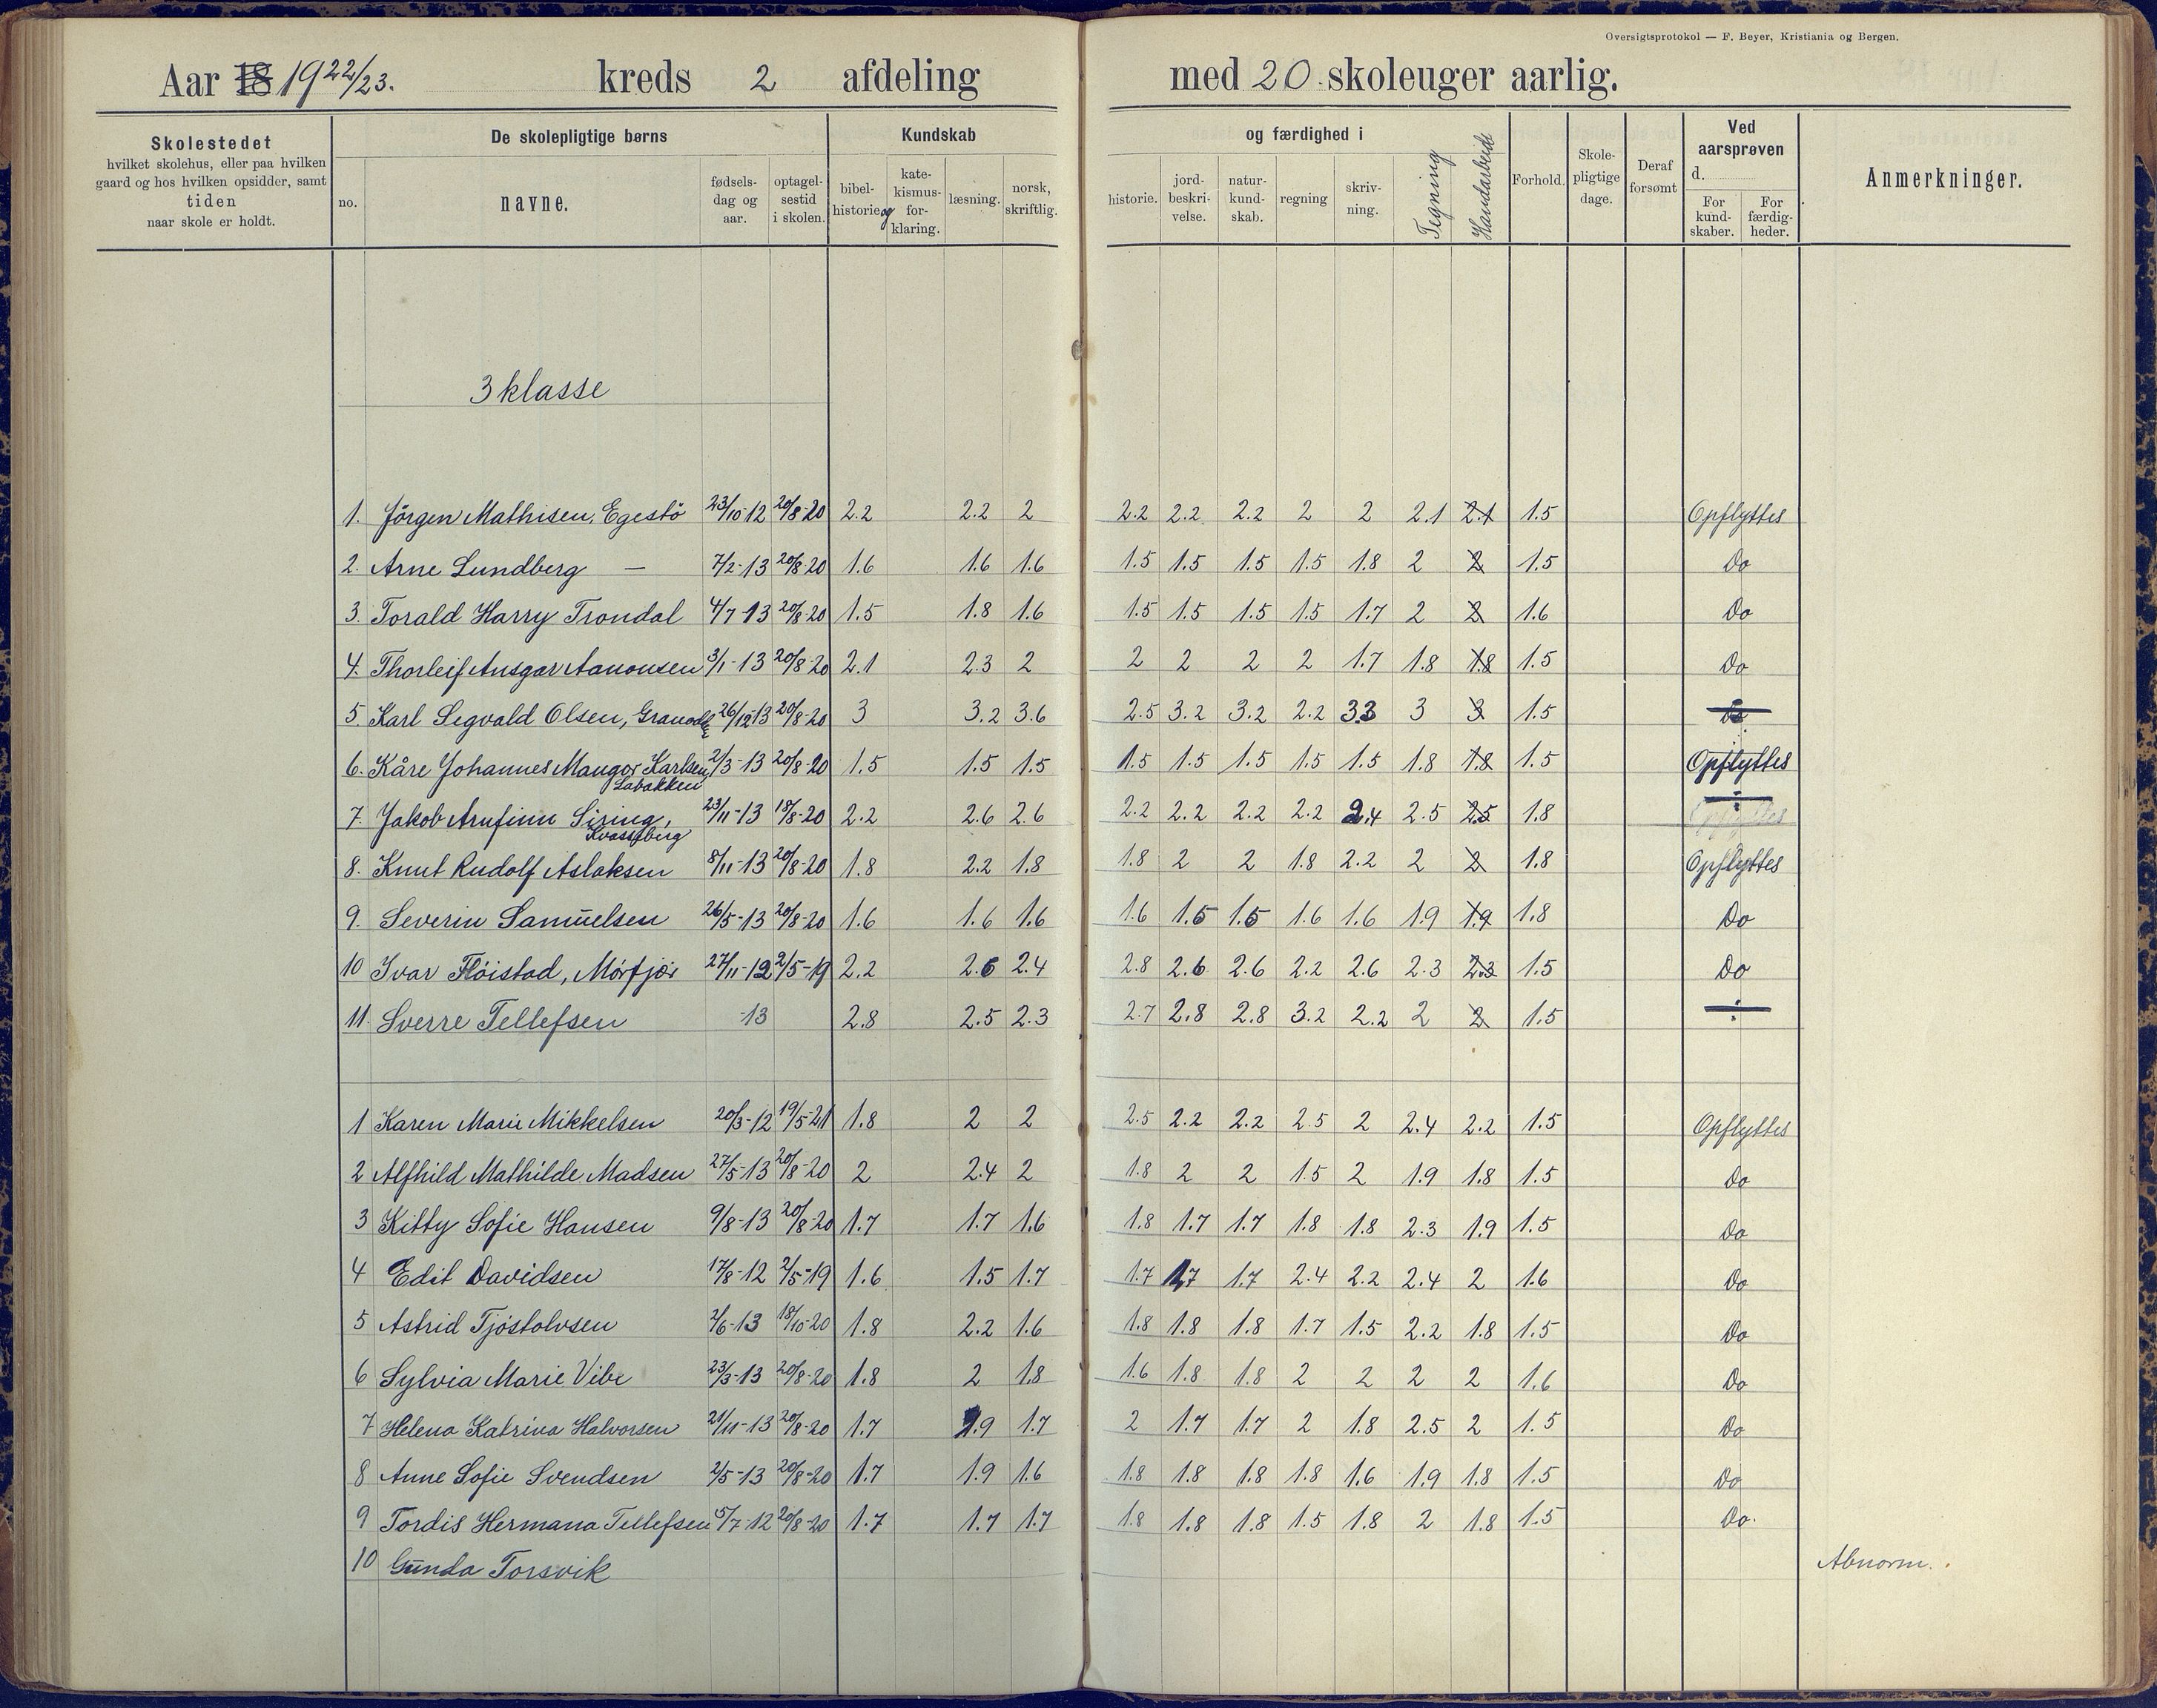 Oversigtsprotokol — F. Beyer, Kristiania og Bergen.
Aar 18 1922/23. kreds 2 afdeling med 20 skoleuger aarlig.
Skolestedet
hvilket skolehus, eller paa hvilken
gaard og hos hvilken opsidder, samt
tiden
naar skole er holdt.
De skolepligtige børns
no. navne. fødsels-dag og aar. optagel-sestid i skolen.
Kundskab og færdighed i
bibel-historie. og kate-kismus-for-klaring. læsning. norsk, skriftlig. historie. jord-beskri-velse. natur-kund-skab. regning skriv-ning. Tegning Haandarbeide
Forhold. Skole-pligtige dage. Deraf forsømt
Ved aarsprøven d.
For kund-skaber. For færdig-heder.
Anmerkninger.
3 klasse
1. Jörgen Mathisen, Egestö 23/10-12 20/8-20 2.2 2.2 2 2.2 2.2 2.2 2 2 2.1 2.1 1.5 Opflyttes
2. Arne Lundberg — 7/2-13 20/8-20 1.6 1.6 1.6 1.5 1.5 1.5 1.5 1.8 2 2 1.5 Do
3. Torald Harry Trondal 4/7-13 20/8-20 1.5 1.8 1.6 1.5 1.5 1.5 1.5 1.7 2 2 1.6 Do
4. Thorleif Ansgar Aanonsen 3/1-13 20/8-20 2.1 2.3 2 2 2 2 2 1.7 1.8 1.8 1.5 Do
5. Karl Segvald Olsen, 26/12-13 20/8-20 3 3.2 3.6 2.5 3.2 3.2 2.2 3.3 3 3 1.5 Do
6. Kåre Johannes Mangor Karlsen 2/3-13 20/8-20 1.5 1.5 1.5 1.5 1.5 1.5 1.5 1.5 1.8 1.8 1.5 Opflyttes
Labakken
7. Jakob Arnfinn Siring, 23/11-13 18/8-20 2.2 2.6 2.6 2.2 2.2 2.2 2.2 2.4 2.5 2.5 1.8 ÷ Opflyttes
Kvassberg
8. Knut Rudolf Aslaksen 8/11-13 20/8-20 1.8 2.2 1.8 1.8 2 2 1.8 2.2 2 2 1.8 Opflyttes
9. Severin Samuelsen 26/5-13 20/8-20 1.6 1.6 1.6 1.6 1.5 1.5 1.6 1.6 1.9 1.9 1.8 Do
10 Ivar Flöistad, Mörfjær 27/11-12 2/5-19 2.2 2.6 2.4 2.8 2.6 2.6 2.2 2.6 2.3 2.3 1.5 Do
11. Sverre Tellefsen -13 2.8 2.5 2.3 2.7 2.8 2.8 3.2 2.2 2 2 1.5 ÷
1 Karen Marie Mikkelsen 20/3-12 19/5-21 1.8 2 2 2.5 2.2 2.2 2.5 2 2.4 2.2 1.5 Opflyttes
2 Alfhild Mathilde Madsen 27/5-13 20/8-20 2 2.4 2 1.8 2 2 1.5 2 1.9 1.8 1.5 Do
3 Kitty Sofie Hansen 9/8-13 20/8-20 1.7 1.7 1.6 1.8 1.7 1.7 1.8 1.8 2.3 1.9 1.5 Do
4 Edit Davidsen 17/8-12 2/5-19 1.6 1.5 1.7 1.7 1.7 1.7 2.4 2.2 2.4 2 1.6 Do
5 Astrid Tjöstolvsen 2/6-13 18/10-20 1.8 2.2 1.6 1.8 1.8 1.8 1.7 1.5 2.2 1.8 1.5 Do
6 Sylvia Marie Vibe 23/3-13 20/8-20 1.8 2 1.8 1.6 1.8 1.8 2 2 2 2 1.6 Do
7 Helena Katrina Halvorsen 21/11-13 20/8-20 1.7 1.9 1.7 2 1.7 1.7 2 1.8 2.5 2 1.5 Do
8 Anne Sofie Svendsen 2/5-13 20/8-20 1.7 1.9 1.6 1.8 1.8 1.8 1.8 1.6 1.9 1.8 1.5 Do
9 Tordis Hermana Tellefsen 5/7-12 20/8-20 1.7 1.7 1.7 1.8 1.8 1.8 1.5 1.8 2 1.8 1.5 Do.
10 Gunda Torsvik Abnorm.